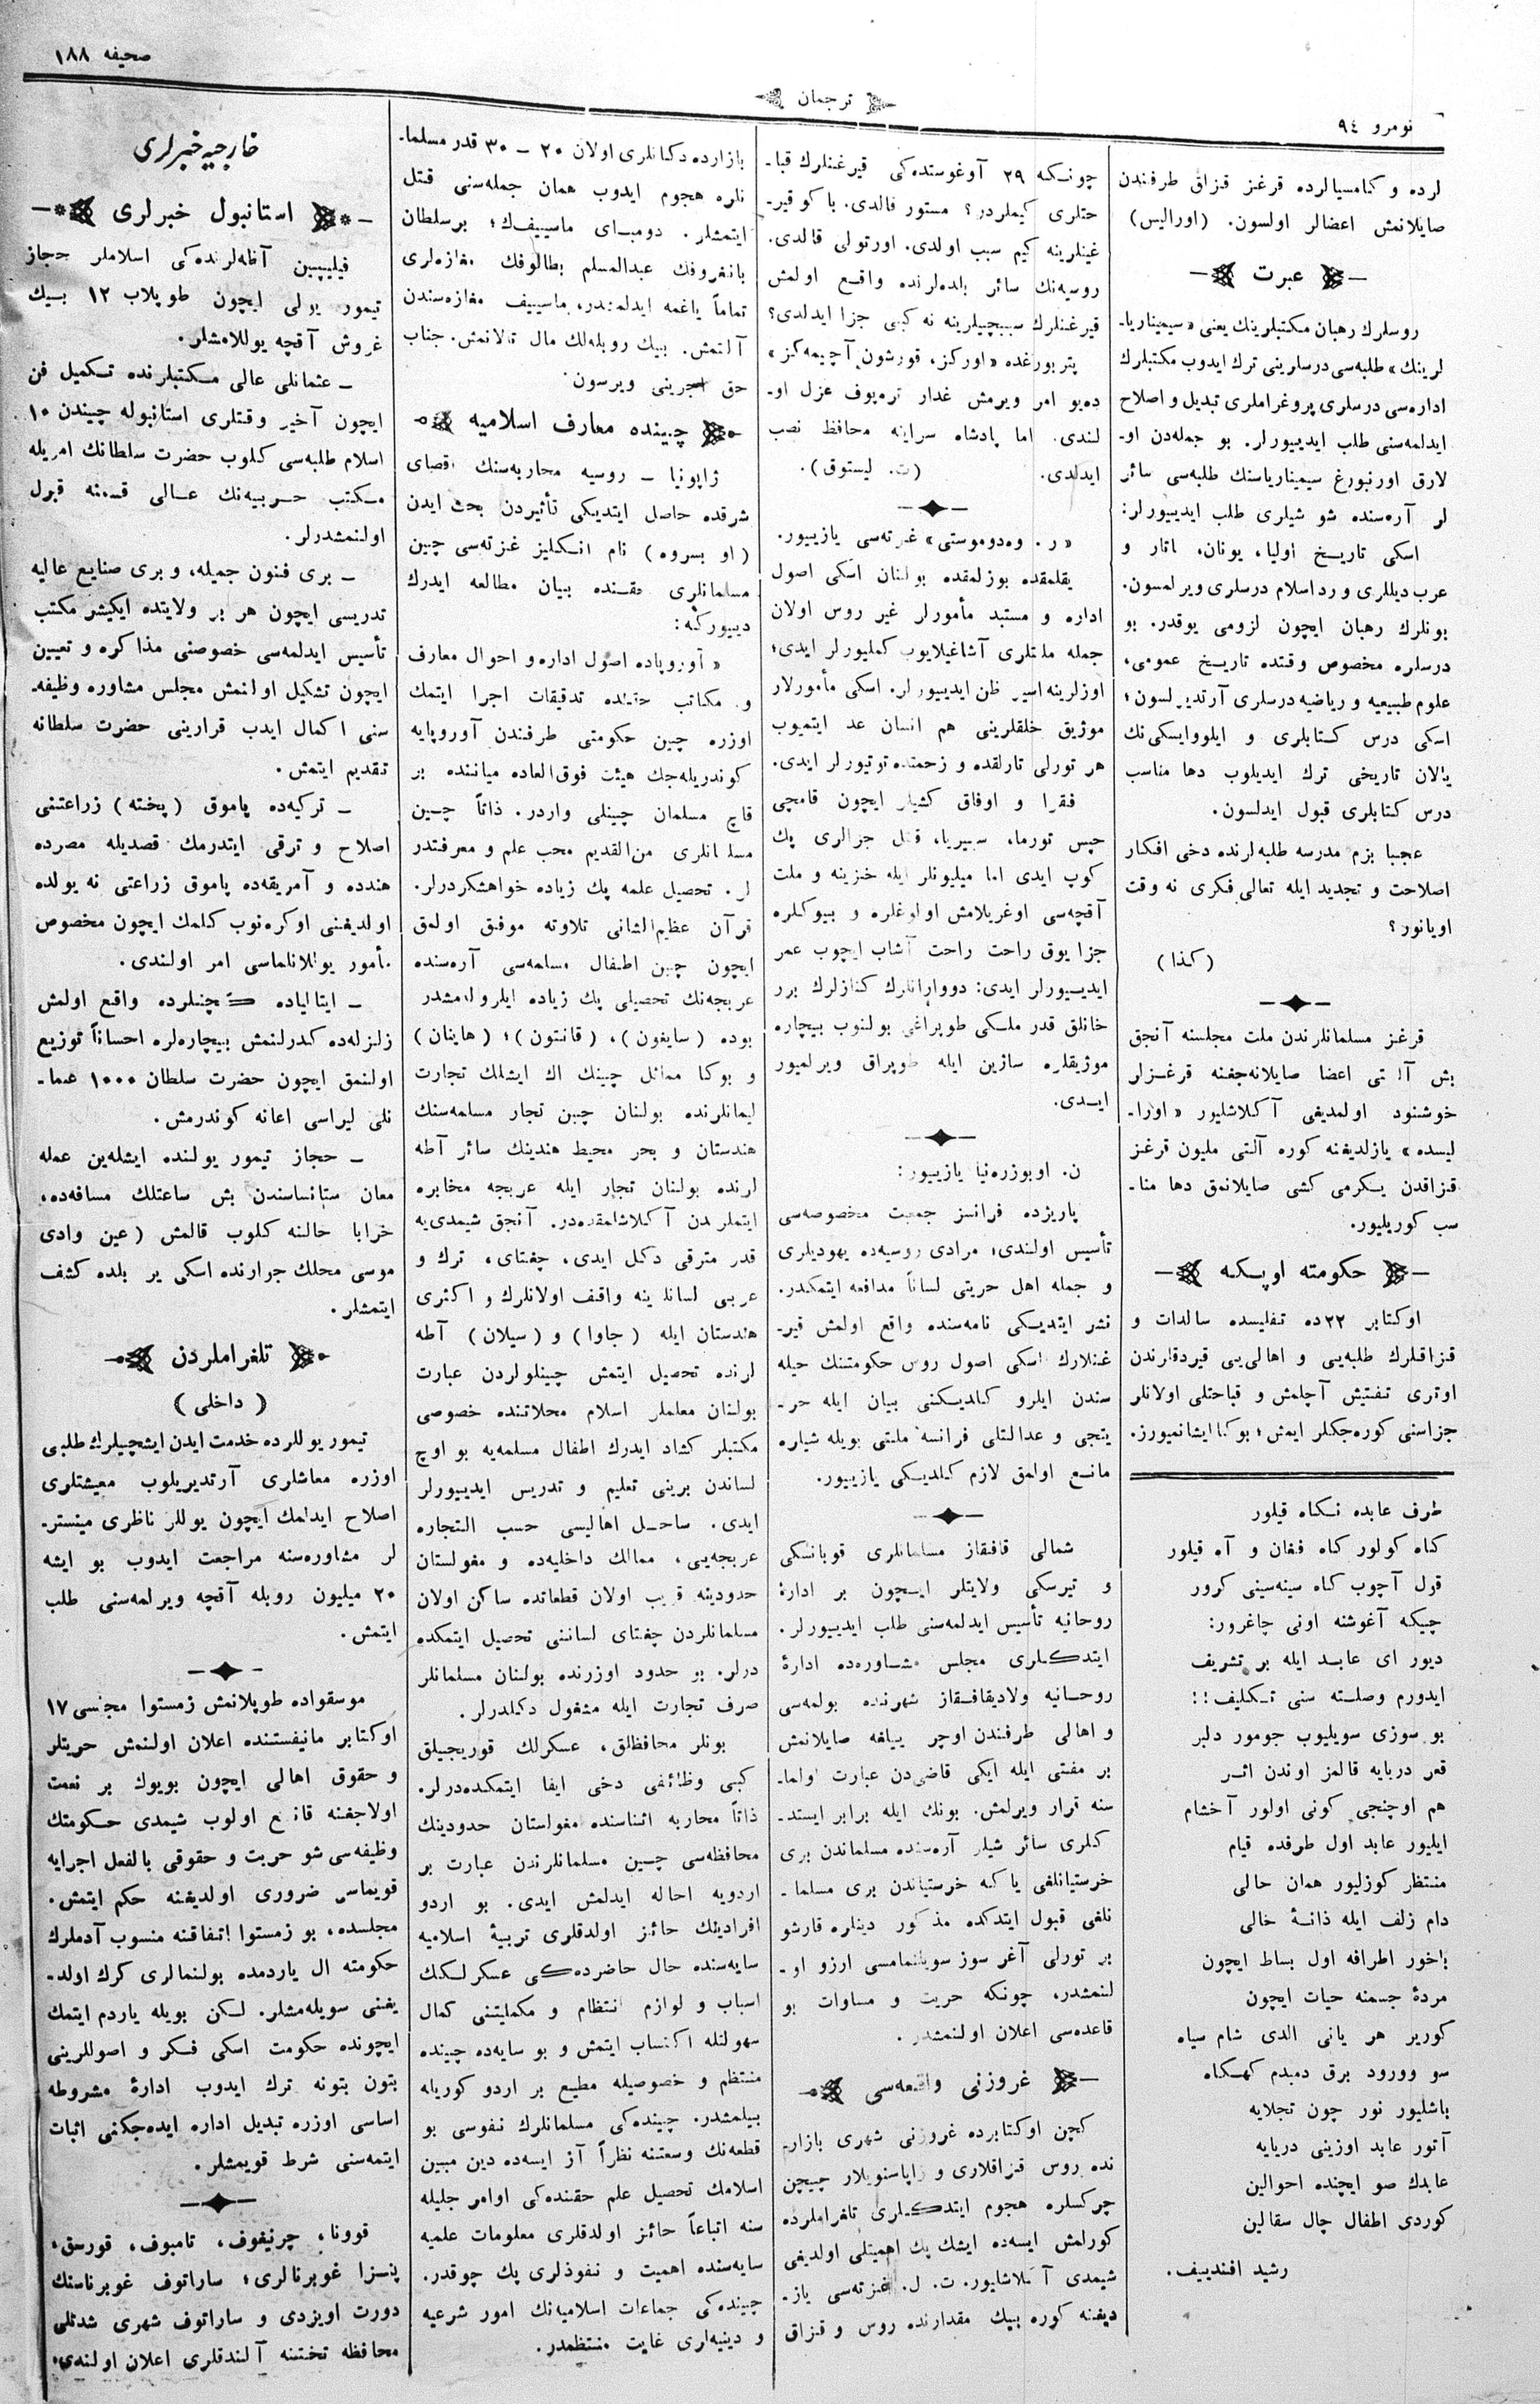 نومرو ٩٤
ترجمان
صحيفه ١٨٨
لرده و كامسيالرده قرغز قزاق طرفندن
صايلانمش اعضالر اولسون. (اوراليس)
عبرت
روسلرك رهبان مكتبلرينك يعنى «سيميناريا-
لرينك» طلبه‌سى درسلرينى ترك ايدوب مكتبلرك
اداره‌سى درسلرى پروغراملرى تبديل و اصلاح
ايدلمه‌سنى طلب ايدييورلر. بو جمله‌دن او-
لارق اورنبورغ سيميناريا‌سنك طلبه‌سى سائر
لر آره‌سنده شو شيلرى طلب ايدييورلر:
اسكى تاريخ اوليا، يونان، تاتار و
عرب ديللرى و رد اسلام درسلرى ويرلمسون.
بونلرك رهبان ايچون لزومى يوقدر. بو
درسلره مخصوص وقتده تاريخ عمومى،
علوم طبيعيه و رياضيه درسلرى آرتديرلسون؛
اسكى درس كتابلرى و ايلووايسكى‌نك
يالان تاريخى ترك ايديلوب دها مناسب
درس كتابلرى قبول ايدلسون.
عجبا بزم مدرسه طلبه‌لرنده دخى افكار
اصلاحت و تجديد ايله تعالى فكرى نه وقت
اويانور؟
(كذا)
قرغز مسلمانلرندن ملت مجلسنه آنجق
بش آلتى اعضا صايلانه‌جغنه قرغزلر
خوشنود اولمديغى آكلاشليور «اورا-
ليسده» يازلديغنه كوره آلتى مليون قرغز
قزاقدن يكرمى كشى صايلانمق دها منا-
سب كوريليور.
حكومته اوپكه
اوكتابر ٢٢ده تفليسده سالدات و
قزاقلرك طلبه‌يى و اهالى‌يى قيردقلرندن
اوترى تفتيش آچلمش و قباحتلى اولانلر
جزاسنى كوره‌جكلر ايمش؛ بوكا ايشانميورز.
طرف عابده نكاه قيلور
كاه كولور كاه فغان و آه قيلور
قول آچوب كاه سينه‌سينى كرور
چيكه آغوشنه اونى چاغرور:
ديور اى عابد ايله بر تشريف
ايدورم وصلته سنى تكليف!!
بو سوزى سويليوب جومور دلبر
قعر دريايه قالمز اوندن اثر
هم اوچنجى كونى اولور آخشام
ايليور عابد اول طرفده قيام
منتظر كوزليور همان حالى
دام زلف ايله دانهٔ خالى
باخور اطرافه اول بساط ايچون
مردهٔ جسمنه حيات ايچون
كورير هر يانى الدى شام سياه
سو وورود برق دمبدم كهكاه
باشليور نور چون تجلايه
آتور عابد اوزينى دريايه
عابدك صو ايچنده احوالين
كوردى اطفال چال سقالين
رشيد افندييف.
چونكه ٢٩ آوغوستده‌كى قيرغنلرك قبا-
حتلرى كيملردر؟ مستور قالدى. باكو قير-
غينلرينه كيم سبب اولدى. اورتولى قالدى.
روسيه‌نك سائر بلده‌لرنده واقع اولمش
قيرغنلرك سببچيلرينه نه كبى جزا ايدلدى؟
پتربورغده «اوركز، قورشون آچيمه‌كز»
ده‌يو امر ويرمش غدار تره‌پوف عزل او-
لندى. اما پادشاه سراينه محافظ نصب
ايدلدى. (ت. ليستوق).
«ر. وه‌دوموستى» غزته‌سى يازييور.
يقلمقده بوزلمقده بولنان اسكى اصول
اداره و مستبد مأمورلر غير روس اولان
جمله ملتلرى آشاغيلايوب كمليورلر ايدى؛
اوزلرينه اسير ظن ايدييورلر. اسكى مأمورلار
موژيق خلقلرينى هم انسان عد ايتميوب
هر تورلى تارلقده و زحمتده توتيورلر ايدى.
فقرا و اوفاق كشيلر ايچون قامچى
حپس تورما، سيبريا، قتل جزالرى پك
كوپ ايدى اما ميليونلر ايله خزينه و ملت
آقچه‌سى اوغريلامش اولوغلره و بيوكلره
جزا يوق راحت راحت آشاب ايچوب عمر
ايدييورلر ايدى: دووارانلرك كنازلرك برر
خانلق قدر ملكى طوپراغى بولنوب بيچاره
موژيقلره سازين ايله طوپراق ويرلميور
ايدى.
ن. اوبوزره‌نيا يازييور:
پاريژده فرانسز جمعيت مخصوصه‌سى
تأسيس اولندى؛ مرادى روسيه‌ده يهوديلرى
و جمله اهل حريتى لساناً مدافعه ايتمكدر.
نشر ايتديكى نامه‌سنده واقع اولمش قير-
غنلارك اسكى اصول روس حكومتنك حيله
سندن ايلرو كلديكنى بيان ايله حر-
يتجى و عدالتلى فرانسه ملتى بويله شيلره
مانع اولمق لازم كلديكى يازييور.
شمالى قافقاز مسلمانلرى قوبانسكى
و تيرسكى ولايتلر ايچون بر ادارهٔ
روحانيه تأسيس ايدلمه‌سنى طلب ايدييورلر.
ايتدكلرى مجلس مشاوره‌ده ادارهٔ
روحانيه ولاديقافقاز شهرنده بولمه‌سى
و اهالى طرفندن اوچر ييلغه صايلانمش
بر مفتى ايله ايكى قاضى‌دن عبارت اولما-
سنه قرار ويرلمش. بونك ايله برابر ايستد-
كلرى سائر شيلر آره‌سنده مسلماندن برى
خرستيانلغى ياكه خرستياندن برى مسلما-
نلغى قبول ايتدكده مذكور دينلره قارشو
بر تورلى آغر سوز سويلنمامسى ارزو او-
لنمشدر، چونكه حريت و مساوات بو
قاعده‌سى اعلان اولنمشدر.
غروزنى واقعه‌سى
كچن اوكتابرده غروزنى شهرى بازارم
نده روس قزاقلارى و زاپاسنويلار چيچن
چركسلره هجوم ايتدكلرى تلغراملرده
كورلمش ايسه‌ده ايشك پك اهميتلى اولديغى
شيمدى آكلاشليور. ت. ل. غزته‌سى ياز-
ديغنه كوره بيك مقدارنده روس و قزاق
بازارده دكانلرى اولان ٢٠ - ٣٠ قدر مسلما-
نلره هجوم ايدوب همان جمله‌سنى قتل
ايتمشلر. دومباى ماسييف‌ك؛ برسلطان
بانغروفك عبدالمسلم بطالوفك مغازه‌لرى
تماماً ياغمه ايدلمشدر، ماسييف مغازه‌سندن
آلتمش. بيك روبله‌لك مال تالانمش. جناب
حق اجرينى ويرسون.
چينده معارف اسلاميه
ژاپونيا - روسيه محاربه‌سنك اقصاى
شرقده حاصل ايتديكى تأثيردن بحث ايدن
(او بسروه) نام انكليز غزته‌سى چين
مسلمانلرى حقنده بيان مطالعه ايدرك
دييوركه:
«آوروپاده اصول اداره و احوال معارف
و مكاتب حقنده تدقيقات اجرا ايتمك
اوزره چين حكومتى طرفندن آوروپايه
كوندريله‌جك هيئت فوق‌العاده مياننده بر
قاچ مسلمان چينلى واردر. ذاتاً چين
مسلمانلرى من‌القديم محب علم و معرفتدر
لر. تحصيل علمه پك زياده خواهشكردرلر.
قرآن عظيم‌الشانى تلاوته موفق اولمق
ايچون چين اطفال مسلمه‌سى آره‌سنده
عربجه‌نك تحصيلى پك زياده ايلرولمشدر
بوده (سايغون)، (قانتون)؛ (هاينان)
و بوكا مماثل چينك اك ايشلك تجارت
ليمانلرنده بولنان چين تجار مسلمه‌سنك
هندستان و بحر محيط هندينك سائر آطه
لرنده بولنان تجار ايله عربجه مخابره
ايتملرندن آكلاشلمقده‌در. آنجق شيمدى‌يه
قدر مترقى دكل ايدى، چغتاى، ترك و
عربى لسانلرينه واقف اولانلرك و اكثرى
هندستان ايله (جاوا) و (سيلان) آطه
لرنده تحصيل ايتمش چينلولردن عبارت
بولنان معلملر اسلام محلاتنده خصوصى
مكتبلر كشاد ايدرك اطفال مسلمه‌يه بو اوچ
لساندن برينى تعليم و تدريس ايدييورلر
ايدى. ساحل اهاليسى حسب التجاره
عربجه‌يى، ممالك داخليه‌ده و مغولستان
حدودينه قريب اولان قطعاتده ساكن اولان
مسلمانلردن چغتاى لساننى تحصيل ايتمكده
درلر. بو حدود اوزرنده بولنان مسلمانلر
صرف تجارت ايله مشغول دكلدرلر.
بونلر محافظلق، عسكرلك قوريجيلق
كبى وظائفى دخى ايفا ايتمكده‌درلر.
ذاتاً محاربه اثناسنده مغولستان حدودينك
محافظه‌سى چين مسلمانلرندن عبارت بر
اردويه احاله ايدلمش ايدى. بو اردو
افرادينك حائز اولدقلرى تربيهٔ اسلاميه
سايه‌سنده حال حاضرده‌كى عسكرلكك
اسباب و لوازم انتظام و مكمليتنى كمال
سهولتله اكتساب ايتمش و بو سايه‌ده چينده
منتظم و خصوصيله مطيع بر اردو كوريله
بيلمشدر. چينده‌كى مسلمانلرك نفوسى بو
قطعه‌نك وسعتنه نظراً آز ايسه‌ده دين مبين
اسلامك تحصيل علم حقنده‌كى اوامر جليله
سنه اتباعاً حائز اولدقلرى معلومات علميه
سايه‌سنده اهميت و نفوذلرى پك چوقدر.
چينده‌كى جماعات اسلاميه‌نك امور شرعيه
و دينيه‌لرى غايت منتظمدر.
خارجيه خبرلرى
استانبول خبرلرى
فيليپين آطه‌لرنده‌كى اسلاملر حجاز
تيمور يولى ايچون طوپلاب ١٢ بيك
غروش آقچه يوللامشلر.
- عثمانلى عالى مكتبلرنده تكميل فن
ايچون آخير وقتلرى استانبوله چيندن ١٠
اسلام طلبه‌سى كلوب حضرت سلطانك امريله
مكتب حربيه‌نك عالى قسمنه قبول
اولنمشدرلر.
- برى فنون جميله، و برى صنايع عاليه
تدريسى ايچون هر بر ولايتده ايكيشر مكتب
تأسيس ايدلمه‌سى خصوصنى مذاكره و تعيين
ايچون تشكيل اولنمش مجلس مشاوره وظيفه-
سنى اكمال ايدب قرارينى حضرت سلطانه
تقديم ايتمش.
- تركيه‌ده پاموق (پخته) زراعتنى
اصلاح و ترقى ايتدرمك قصديله مصرده
هندده و آمريقه‌ده پاموق زراعتى نه يولده
اولديغنى اوكره‌نوب كلمك ايچون مخصوص
مأمور يوللانلماسى امر اولندى.
- ايتالياده كچنلرده واقع اولمش
زلزله‌ده كدرلنمش بيچاره‌لره احساناً توزيع
اولنمق ايچون حضرت سلطان ١٠٠٠ عثما-
نلى ليراسى اعانه كوندرمش.
- حجاز تيمور يولنده ايشله‌ين عمله
معان ستانساسندن بش ساعتلك مسافه‌ده،
خرابا حالنه كلوب قالمش (عين وادى
موسى محلك جوارنده اسكى بر بلده كشف
ايتمشلر.
تلغراملردن
(داخلى)
تيمور يوللرده خدمت ايدن ايشچيلرك طلبى
اوزره معاشلرى آرتديريلوب معيشتلرى
اصلاح ايدلمك ايچون يوللر ناظرى مينستر-
لر مشاوره‌سنه مراجعت ايدوب بو ايشه
٢٠ ميليون روبله آقچه ويرلمه‌سنى طلب
ايتمش.
موسقواده طوپلانمش زمستوا مجلسى ١٧
اوكتابر مانيفستنده اعلان اولنمش حريتلر
و حقوق اهالى ايچون بويوك بر نعمت
اولاجغنه قانع اولوب شيمدى حكومتك
وظيفه‌سى شو حريت و حقوقى بالفعل اجرايه
قويماسى ضرورى اولديغنه حكم ايتمش.
مجلسده، بو زمستوا اتفاقنه منسوب آدملرك
حكومته ال ياردمده بولنمالرى كرك اولد-
يغنى سويله‌مشلر. لكن بويله ياردم ايتمك
ايچونده حكومت اسكى فكر و اصوللرينى
بتون بتونه ترك ايدوب ادارهٔ مشروطه
اساسى اوزره تبديل اداره ايده‌جكنى اثبات
ايتمه‌سنى شرط قويمشلر.
قوونا، چرنيغوف، تامبوف، قورسق،
پنزا غوبرنالرى؛ ساراتوف غوبرناسنك
دورت اويزدى و ساراتوف شهرى شدتلى
محافظه تختنه آلندقلرى اعلان اولندى؛